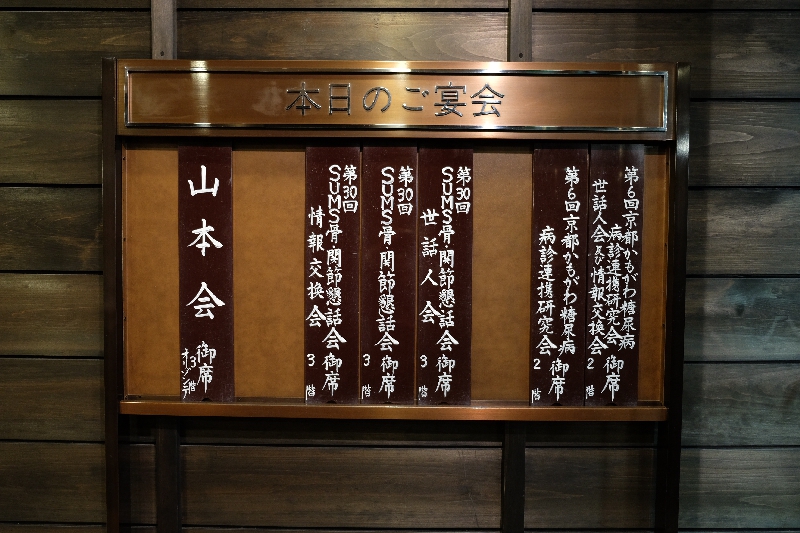 本日のご宴会
第6回京都かもがわ糖尿病
病診連携研究会
世話人会及び情報交換会
御席
2階
第6回京都かもがわ糖尿病
病診連携研究会
御席
2階
第30回
SUMS骨・関節懇話会
世話人会
御席
3階
第30回
SUMS骨・関節懇話会
御席
3階
第30回
SUMS骨・関節懇話会
情報交換会
御席
3階
山本会
御席
3階